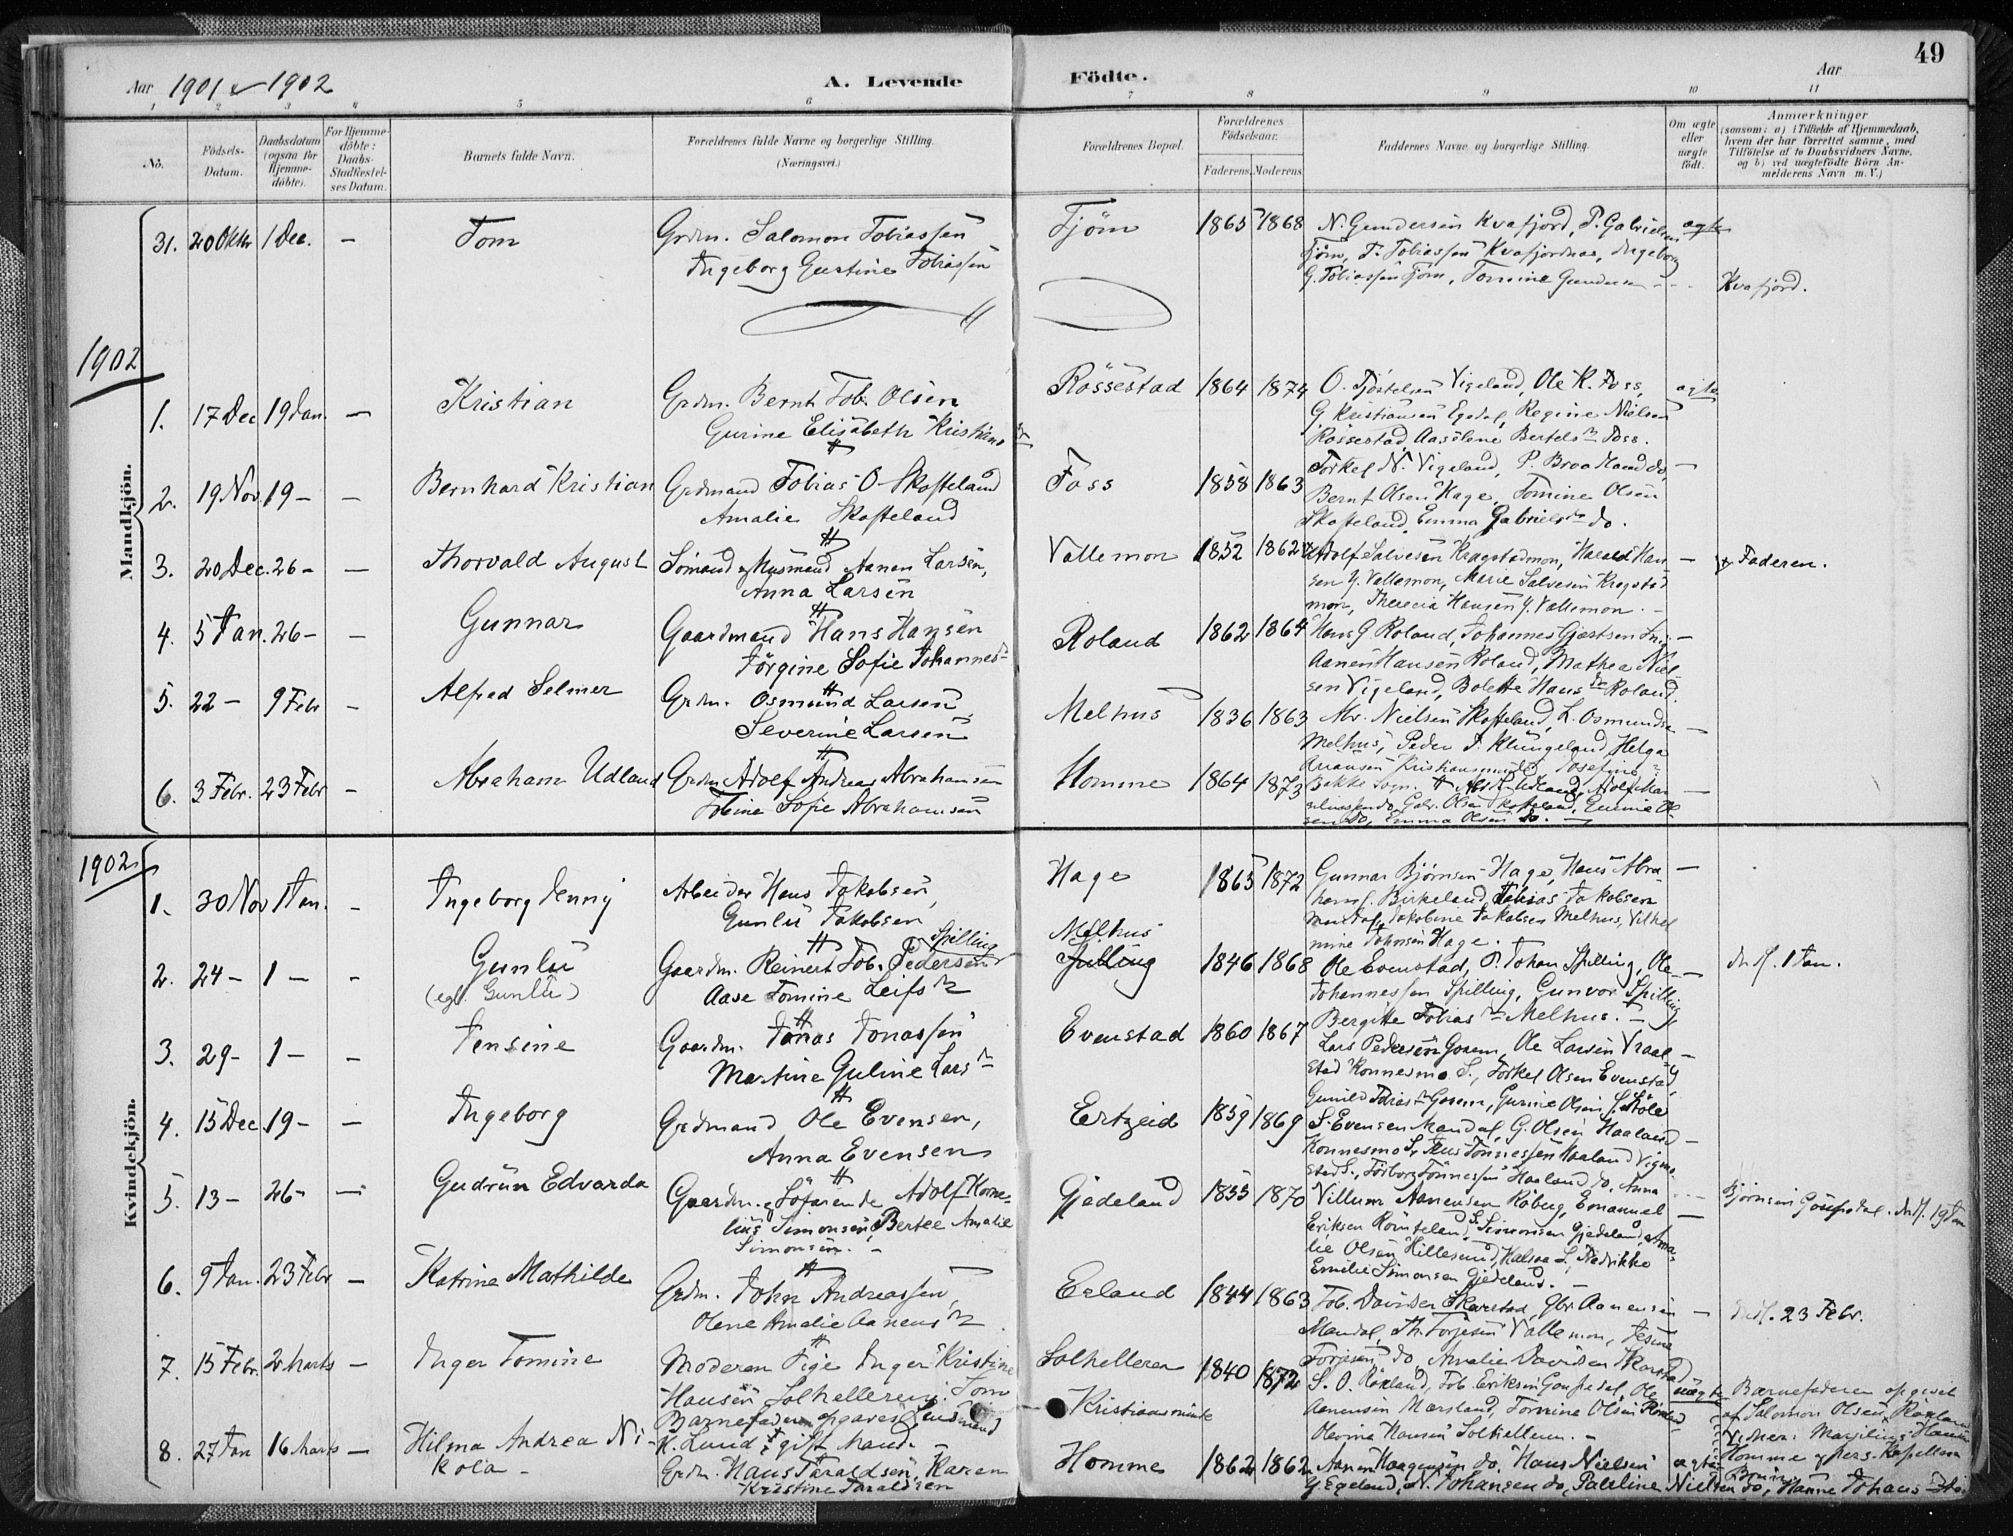 49
Aar 1901 & 1902
A. Levende
Födte.
Aar
1 2 3 4 5 6 7 8 9 10 11
No.
Födsels-Datum.
Daabsdatum (ogsaa for Hjemme-döbte).
For Hjemme-döbte: Daabs-Stadfæstel-ses Datum.
Barnets fulde Navn.
Forældrenes fulde Navne og borgerlige Stilling.
(Næringsvei.)
Forældrenes Bopæl.
Forældrenes Födselsaar.
Faderens. Moderens.
Faddernes Navne og borgerlige Stilling.
Om ægte eller uægte födt.
Anmærkninger
(saasom: a) i Tilfælde af Hjemmedaab, hvem der har forrettet samme, med Tilföielse af to Daabsvidners Navne, og b) ved uægtefödte Börn An-melderens Navn m. V.)
31. 20 Oktr 1 Dec. - Tom
Grdm. Salomon Tobiassen
Ingeborg Gustine Tobiassen
Tjöm 1865 1868
N. Gundersen Kvafjord, P. Gabrielsen
Tjöm, T. Tobiassen Kvafjordnes, Ingeborg
G. Tobiassen Tjöm, Tomine Gundersen - -
ægte
Kvafjord.
1902
Mandkjön.
1. 17 Dec 19 Jan. - Kristian
Grdm. Bernt Tob. Olsen
Gurine Elisabeth Kristians
Rössestad 1864 1874
O. Fjöstelsen Vigeland, Ole K. Foss,
G. Kristiansen Egedal, Regine Nielsen
Rössestad Aasolene Bertels Foss.
ægte
2. 19 Nov. 19 - - Bernhard Kristian
Grdmand Tobias O. Skofteland
Amalie Skofteland
Foss 1858 1863
Torkel N. Vigeland, P. Braadland do,
Bernt Olsen Hage, Tomine Olsen
Skofteland, Emma Gabriels do.
-
3. 20 Dec. 26 - - Thorvald August
Sömand og Husmand Aanen Larsen,
Anna Larsen
Vallemon 1852 1862
Adolf Salvesen Kragstadmon, Harald Han-
sen Y. Vallemon, Marie Salvesen Kragstad
mon, Therecia Hansen Y. Vallemon. -
- Faderen.
4. 5 Jan. 26 - - Gunnar
Gaardmand Hans Hansen
Jörgine Sofie Johannes
Roland 1862 1864
Hans G Roland, Johannes Gjertsen
Aanen Hansen Roland, Mathea Niel-
sen Vigeland, Bolette Hans Roland.
-
5. 22 - 9 Febr - Alfred Selmer
Grdm. Osmund Larsen
Severine Larsen
Melhus 1836 1863
Abr. Nielsen Skofteland, L. Osmunds
Melhus, Peder T. Klungeland, Helga
Kristiansminde Josefine
-
6. 3 Febr. 23 Febr - Abraham Udland
Grdm Adolf Andreas Abrahamsen
Tobine Sofie Abrahamsen
Homme 1864 1873
Bakke Sogn. Abr. Udland, Adolf
do, Gabr. Olsen Skofteland, Emmie Ol-
sen do, Emma Olsen do. -
-
1902
Kvindekjön.
1. 30 Nov 1 Jan. - Ingeborg Jenny
Arbeider Hans Jakobsen,
Gunlu Jakobsen
Hage 1865 1872
Gunnar Björnsen Hage, Hans Abra-
hams. Birkeland, Tobias Jakobsen
Mandal, Jakobine Jakobsen Melhus, Vilhel
mine Johnsen Hage.
-
2. 24 - 1 - - Gunlu
(egl. Gunlu)
Gaardm. Reinert Tob. Pedersen Spilling
Aase Tomine Leifs
Melhus
Spilling
1846 1868
Ole Evenstad, P. Johan Spilling, Ole
Johannessen Spilling, Gunvor Spilling,
Bergitte Tobias Melhus. -
-
1 Jan.
3. 29 - 1 - - Jensine
Gaardm. Jonas Jonassen
Martine Guline Lars
Evenstad 1860 1867
Lars Pedersen Gosem, Ole Larsen Vraal-
stad Konnesmo S., Torkel Olsen Evenstad,
Gunild Tobias Gosem, Gurine Olsen
-
4. 15 Dec 19 - - Ingeborg
Grdmand Ole Evensen,
Anna Evensen
Ertzeid 1859 1869
S. Evensen Mandal, G. Olsen Haaland
Konnesmo S, Jens Tönnessen Haaland Vigmo-
stad S., Torborg Tönnessen Haaland do, Anna
-
5. 13 - 26 - - Gudrun Edvarda
Gaardm. & Söfarende Adolf Korne-
lius Simonsen, Bertee Amalie
Simonsen. -
Gjedeland 1855 1870
Villum Aanensen Röberg, Emanuel
Eriksen Römteland, S. Simonsen Gjedeland, Ama-
lie Olsen Hillesund, Halsaa S, Fredrikke
Emilie Simonsen Gjedeland. -
-
Björnsen 19 Jan
6. 9 Jan. 23 Febr - Katrine Mathilde
Grdm. John Andreassen,
Olene Amalie Aanens
Erland 1844 1863
Tob. Davidsen Skarstad, Gbr Aanensen
Mandal, Th. Torjesen Vallemon, Jesine
Torjesen do Amalie Davidsen Skarstad
-
23 Febr.
7. 15 Febr. 2 Marts - Inger Tomine
Moderen Pige Inger Kristine
Hansen Solhelleren. Som
Barnefader opgaves Sömand
K. Lund, gift Mand.
Solhelleren
Kristiansminde
1840 1872
S. O. Röiland, Tob. Eriksen, Ole
Aanensen Marsland, Tomine Olsen
Olevine Hansen Solhelleren. -
uægte
Barnefaderen opgivet
af Salomon Olsen
Vidner: Hansen
Homme & pers. Kapellan
8. 27 Jan 16 Marts - Hilma Andrea Ni-
kola -
Grdm. Hans Taraldsen, Karen
Kristine Taraldsen
Homme 1862 1862
Aanen Haagensen do, Hans Nielsen
Y. Egeland, N. Johansen do, Pauline Nielsen do, Hanne Johans
ægte